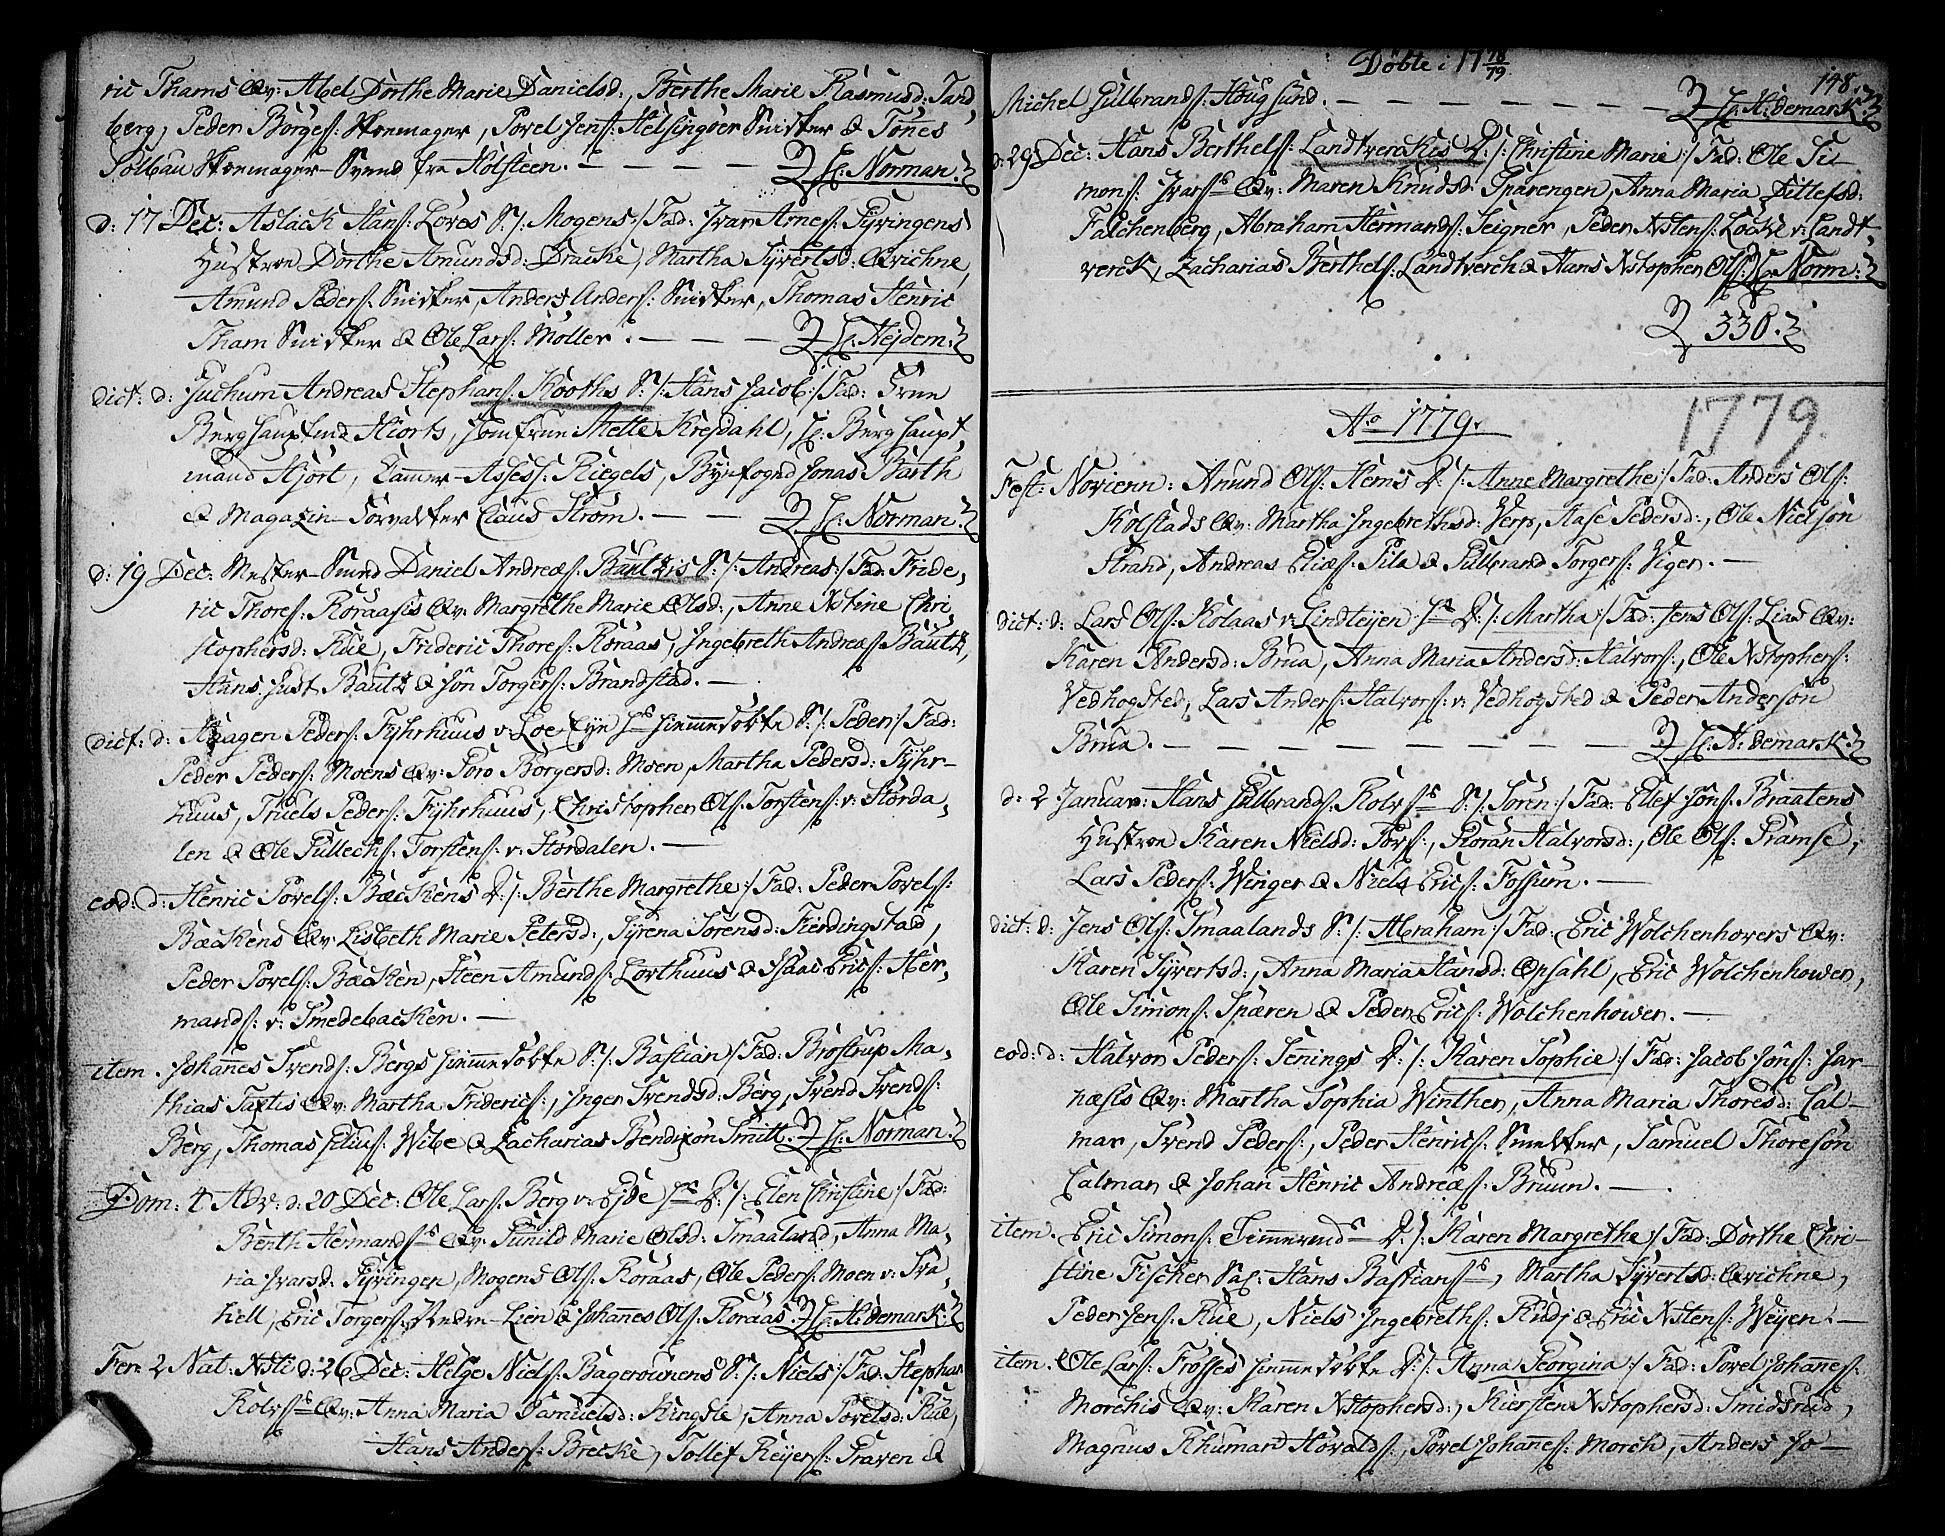 ric Thams Qv: Abel Dorthe Marie Danielsd:, Berthe Marie Rasmusd: Sand,
berg, Peder Börges: Skoemager, Povel Jens: Helsingöer Snidker & Tönes
Sölbau Skoemager-Svend fra Holsteen. — — — — Hr. Norman.
d: 17 Dec: Aslack Hans: Lövos S: /: Mogens :/ Fad: Ivar Arnes: Gyvingens
Hustroe Dorthe Amundsd: Dracke, Martha Syvertsd: Qvichne,
Amund Peders: Snidker, Anders Anders: Snidker, Thomas Henric
Tham Snidker & Ole Lars: Möller. — — — Hr. Hejdem:
dict: d: Juchum Andreas Stephans: Kooths S: /: Hans Jacob :/ Fad: Frue
Berghauptmd Hiorts, Jomfrue Mette Krejdahl, Hr: Berghaupt,
mand Hjort, Camer-Assess: Riegels, Bÿefogend Jonas Barth
& Magazin-Forvalter Claus Ström. — — — Hr. Norman.
d: 19 Dec: Mester-Smed Daniel Andreæs: Bautzis S: /: Andreas :/ Fad: Fride,
ric Thores: Roraasis Qv: Margrethe Marie Olsd:, Anne Xstine Chri,
stophersd: Rue, Frideric Thores: Roraas, Ingebreth Andreæs: Bautz,
Hans Just Bautz & Jön Torgers: Brandstad. —
dict: d: Haagen Peders: Fyhrhuus v: Loe Eye hs hiemmedöbte S: /: Peder :/ Fad:
Peder Peders: Moens Qv: Goro Borgersd: Moen, Martha Pedersd: Fyhr-
huus, Truels Peders: Fyhrhuus, Christopher Ols: Torstens: v: Storda,
len & Ole Gullechs: Torstens: v: Stordalen. —
eod: d: Henric Povels: Bæckens D: /: Berthe Margrethe :/ Fad: Peder Povels:
Bæckens Qv: Lisbeth Marie Petersd:, Syrena Sörensd: Fierdingstad,
Peder Povels: Bæcken, Steen Amunds: Lorthuus & Isaac Erics: Her,
mands: v: Smedebacken. —
item. Johannes Svends: Bergs hiemmedöbte S: /: Bastian :/ Fad: Bröstrup Ma,
thias Taxtis Qv: Martha Friderics:, Inger Svendsd: Berg, Svend Svends:
Berg, Thomas Wibe & Zacharias Bendixön Smitt. Hr. Norman.
Dom: 4 Adv: d: 20 Dec: Ole Lars: Berg v: Ejde hs D: /: Elen Christine :/ Fad:
Benth Hermands: Qv: Gunild Marie Olsd: Smaaland, Anna Ma,
ria Ivarsd: Gyvingen, Mogens Ols: Roraas, Ole Peders: Moen v: Sva,
hell, Eric Torgers: Nedre-Lien & Johannes Ols: Roraas. Hr. Hedemark.
Fer: 2 Nat: Xsti d: 26 Dec: Helge Niels: Bagerouenens S: /: Niels :/ Fad: Stephan
Rolvs: Qv: Anna Maria Samuelsd: Kingste, Anna Povelsd: Rue,
Hans Anders: Brecke, Tollef Reyers: Graven &
Döbte i 17 78/79
148.
Michel Gulbrands: Hougsund. — — — — — — Hr. Hedemark.
d: 29 Dec: Hans Berthels: Landtverckis D: /: Christine Marie :/ Fad: Ole Si-
mons: Ivars: Qv: Maren Knudsd: Sparengen, Anna Maria Ditlefsd:
Falchenberg, Abraham Hermands: Seigner, Peder Xstens: Löcke v: Landt,
verck, Zacharias Berthels: Landtverck & Hans Xstopher Ols: Hr. Norm:
330.
Ao 1779.
1779.
Fest: Novi enn: Amund Ols: Hems D: /: Anne Margrethe :/ Fad: Anders Ols:
Kolstads Qv: Martha Ingebrethsd: Verp, Aase Pedersd:, Ole Nielsön
Strand, Andreas Eliæs: Pila & Gulbrand Torgers: Vigen. —
dict: d: Lars Ols: Kolaas v: Lindteijen hs D: /: Martha :/ Fad: Jens Ols: Lias Qv:
Karen Andersd: Brua, Anna Maria Andersd: Halvors:, Ole Xstophers:
Vedhogsted, Lars Anders: Halvors: v: Vedhogsted & Peder Andersön
Brua. — — — — — — — — Hr. Hedemark.
d: 2 Januar: Hans Gulbrands: Rolvs: S: /: Sören :/ Fad: Ellef Jöns: Braatens
Hustroe Karen Nielsd: Povs:, Goran Halvorsd:, Ole Ols: Gramse,
Lars Peders: Winger & Niels Erics: Fossum. —
dict: d: Jens Ols: Smaalands S: /: Abraham :/ Fad: Eric Wolchenhovers Qv:
Karen Syvertsd:, Anna Maria Hansd: Opsahl, Eric Wolchenhower,
Ole Simons: Spæren & Peder Erics: Wolchenhower. —
eod: d: Halvor Peders: Senings D: /: Karen Sophie :/ Fad: Jacob Jöns: Jar-
næsis Qv: Martha Sophia Winther, Anna Maria Thoresd: Cal-
mar, Svend Peders:, Peder Henrics: Smelter, Samuel Thoresön
Calmar & Johan Henric Andreæs: Bruun. —
item. Eric Simons: Timmermds D: /: Karen Margrethe :/ Fad: Dorthe Chri-
stine Fischer Sal: Hans Bastians:, Martha Syvertsd: Qvichne,
Peder Jens: Rue, Niels Ingebreths: Rudj & Eric Xstens: Weyen. —
item. Ole Lars: Frosses hiemmedöbte D: /: Anna Georgina :/ Fad: Povel Johannes:
Morchis Qv: Karen Xstophersd:, Kiersten Xstophersd: Smidsrud,
Magnus Rhumand Hövalds:, Povel Johannes: Morch, Anders Jo-